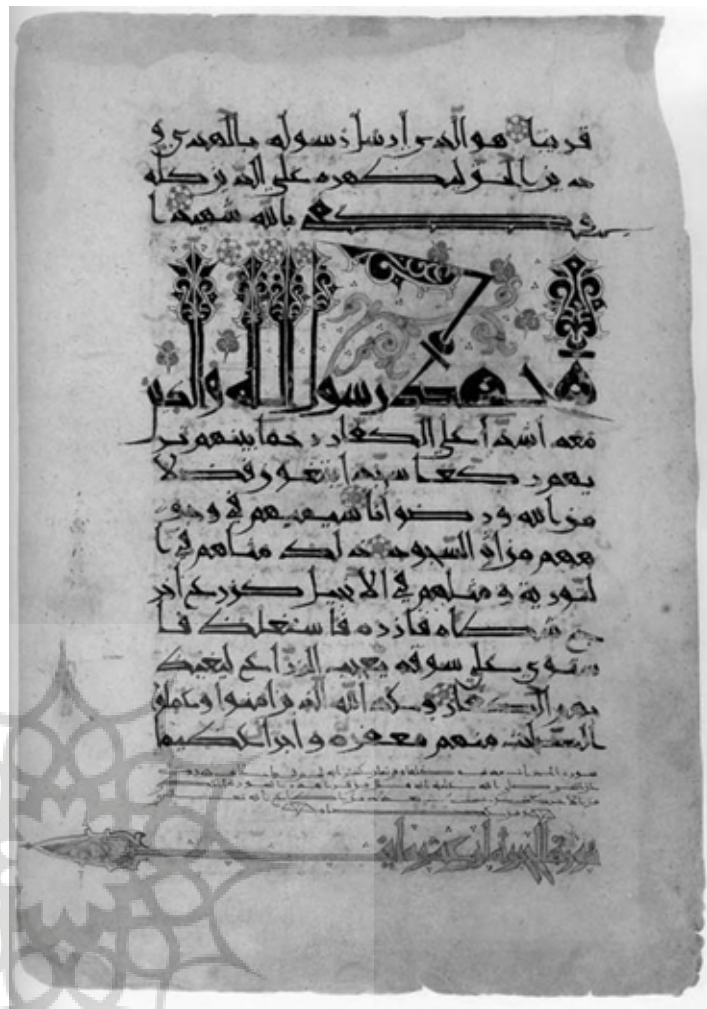 قريبا هو الذي ارسل رسوله بالهدى و
دين الحق ليظهره على الدين كله
وكفى بالله شهيدا
محمد رسول الله والذين
معه اشدا على الكفار رحما بينهم تر
يهم ركعا سجدا يبتغون فضلا
من الله ورضوانا سيميهم في وجو
ههم من اثر السجود ذلك مثلهم في ا
لتورية و مثلهم في الانجيل كزرع اخر
ج شطاه فازره فاستغلظ فا
ستوى على سوقه يعجب الزراع ليغيظ
بهم الكفار وعد الله الذين امنوا وعملوا
الصلحت منهم مغفرة واجرا عظيما
سورة الحجرات
سورة